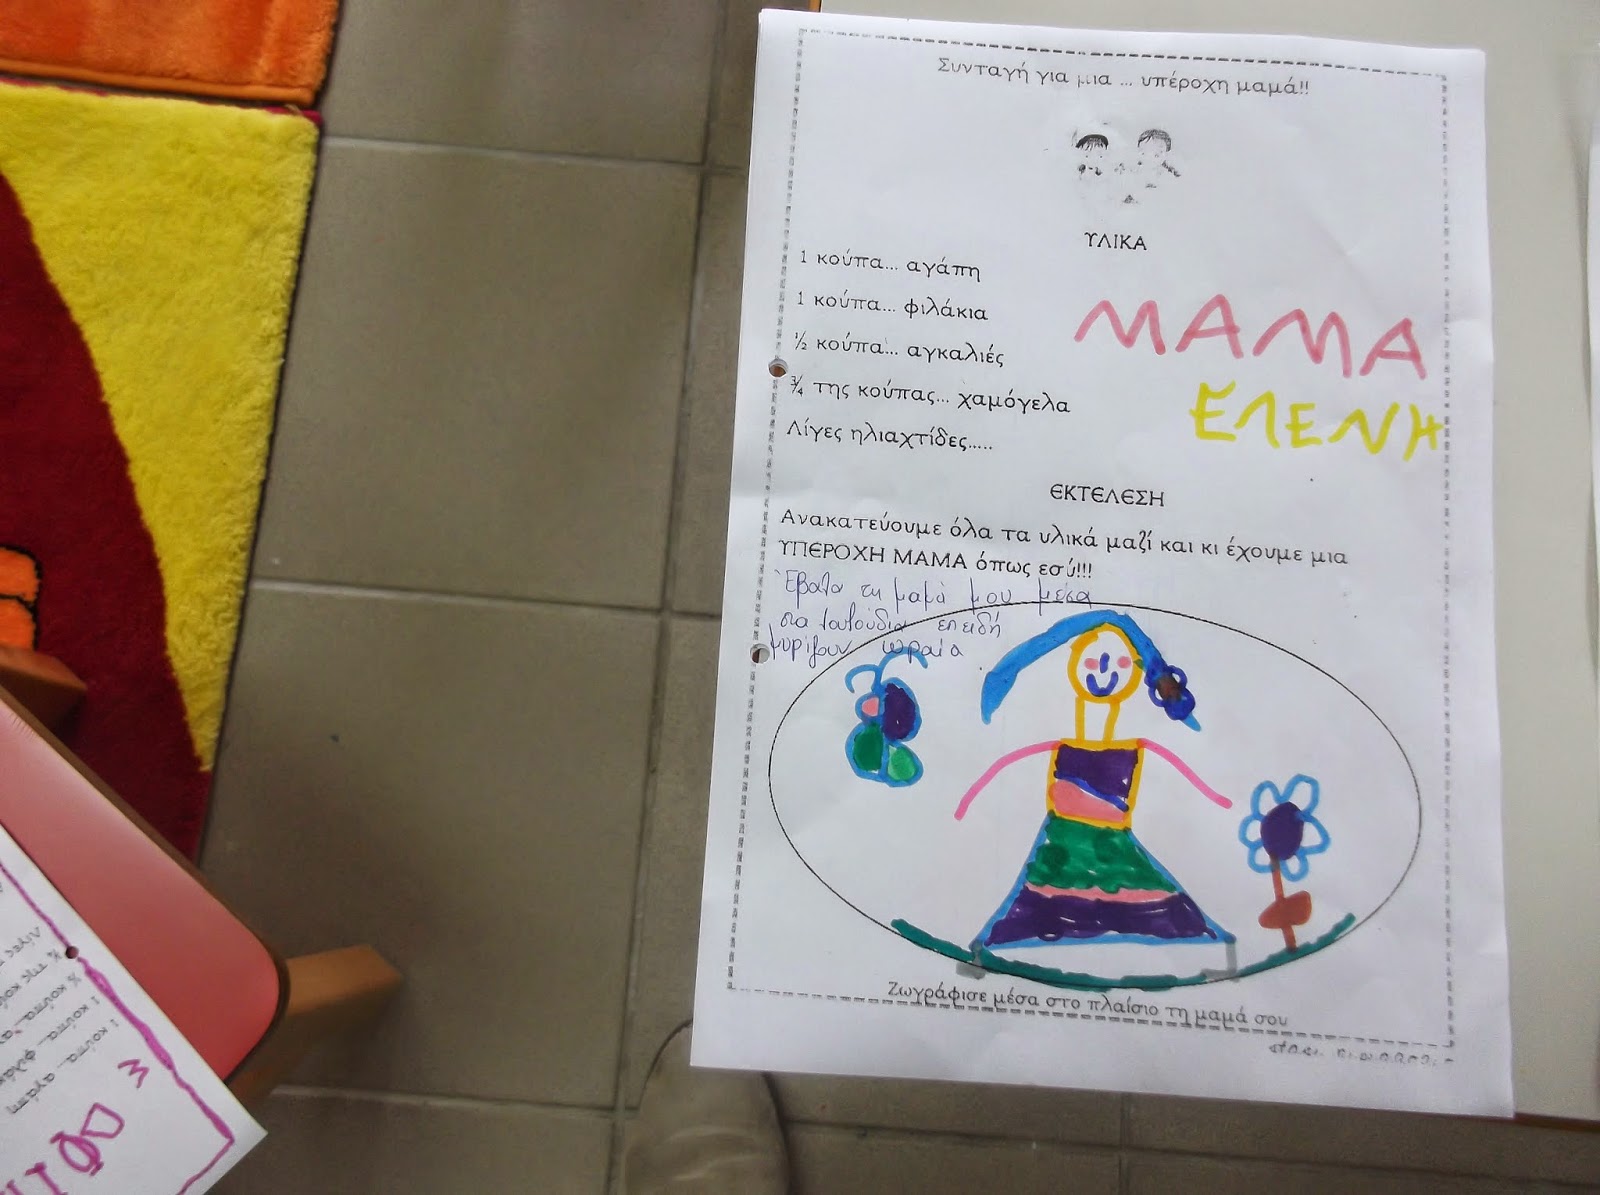 Συνταγή για μια ... υπέροχη μαμά!!
ΥΛΙΚΑ
1 κούπα... αγάπη
1 κούπα... φιλάκια
½ κούπα... αγκαλιές
¾ της κούπας... χαμόγελα
Λίγες ηλιαχτίδες.....
ΜΑΜΑ
ΕΛΕΝΗ
ΕΚΤΕΛΕΣΗ
Ανακατεύουμε όλα τα υλικά μαζί και κι έχουμε μια
ΥΠΕΡΟΧΗ ΜΑΜΑ όπως εσύ!!!
Έβαλα τη μαμά μου μεσα
στα λουλούδια επειδή
μυρίζουν ωραία
Ζωγράφισε μέσα στο πλαίσιο τη μαμά σου
1 κούπα... αγάπη
1 κούπα... φιλάκ
½ κούπα... αγ
¾ της κού
Λίγες